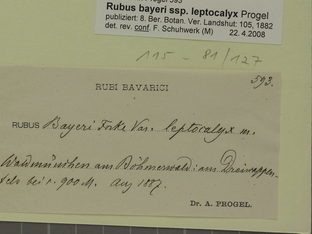 Rubus bayeri ssp. leptocalyx Progel
publiziert: 8. Ber. Botan. Ver. Landshut: 105, 1882
det. rev. conf. F. Schuhwerk (M) 22.4.2008
115 - 81/127
593.
RUBI BAVARICI
RUBUS Bayeri Focke Var. leptocalyx m.
Waldmünchen am Böhmerwald: am Dreiwappen-
fels bei c. 900 M. Aug 1887.
Dr. A. PROGEL.